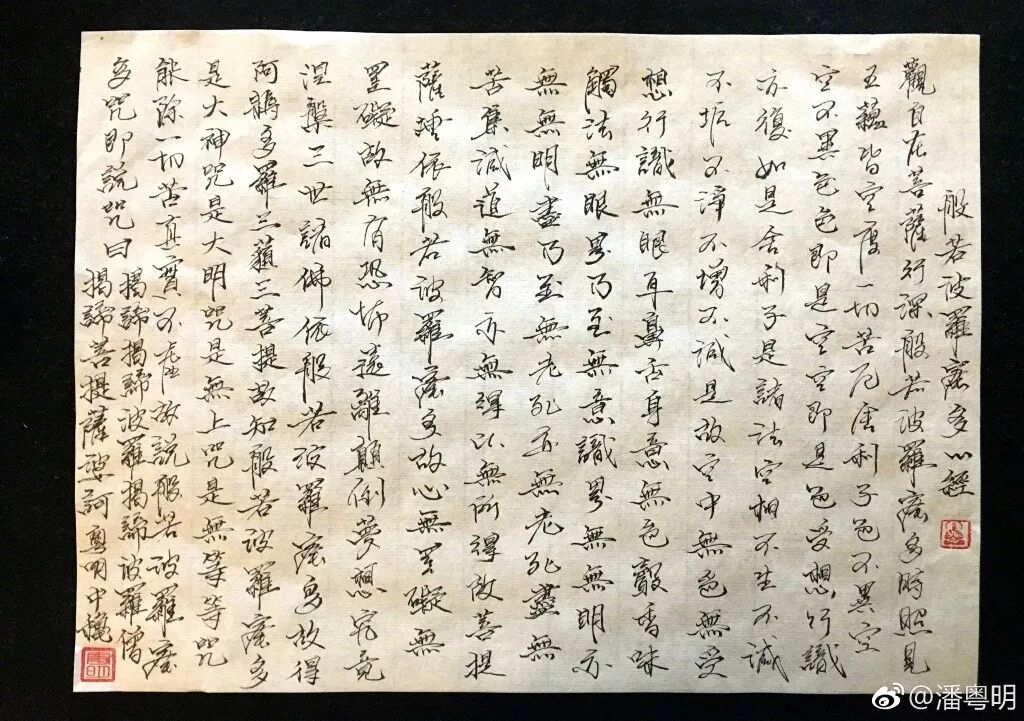 般若波羅蜜多心經
觀自在菩薩行深般若波羅蜜多時照見
五蘊皆空度一切苦厄舍利子色不異空
空不異色色即是空空即是色受想行識
亦復如是舍利子是諸法空相不生不滅
不垢不淨不增不減是故空中無色無受
想行識無眼耳鼻舌身意無色聲香味
觸法無眼界乃至無意識界無無明亦
無無明盡乃至無老死亦無老死盡無
苦集滅道無智亦無得以無所得故菩提
薩埵依般若波羅蜜多故心無罣礙無
罣礙故無有恐怖遠離顛倒夢想究竟
涅槃三世諸佛依般若波羅蜜多故得
阿耨多羅三藐三菩提故知般若波羅蜜多
是大神咒是大明咒是無上咒是無等等咒
能除一切苦真實不虛故說般若波羅蜜
多咒即說咒曰
揭諦揭諦波羅揭諦波羅僧
揭諦菩提薩婆訶 粵明中
@潘粤明